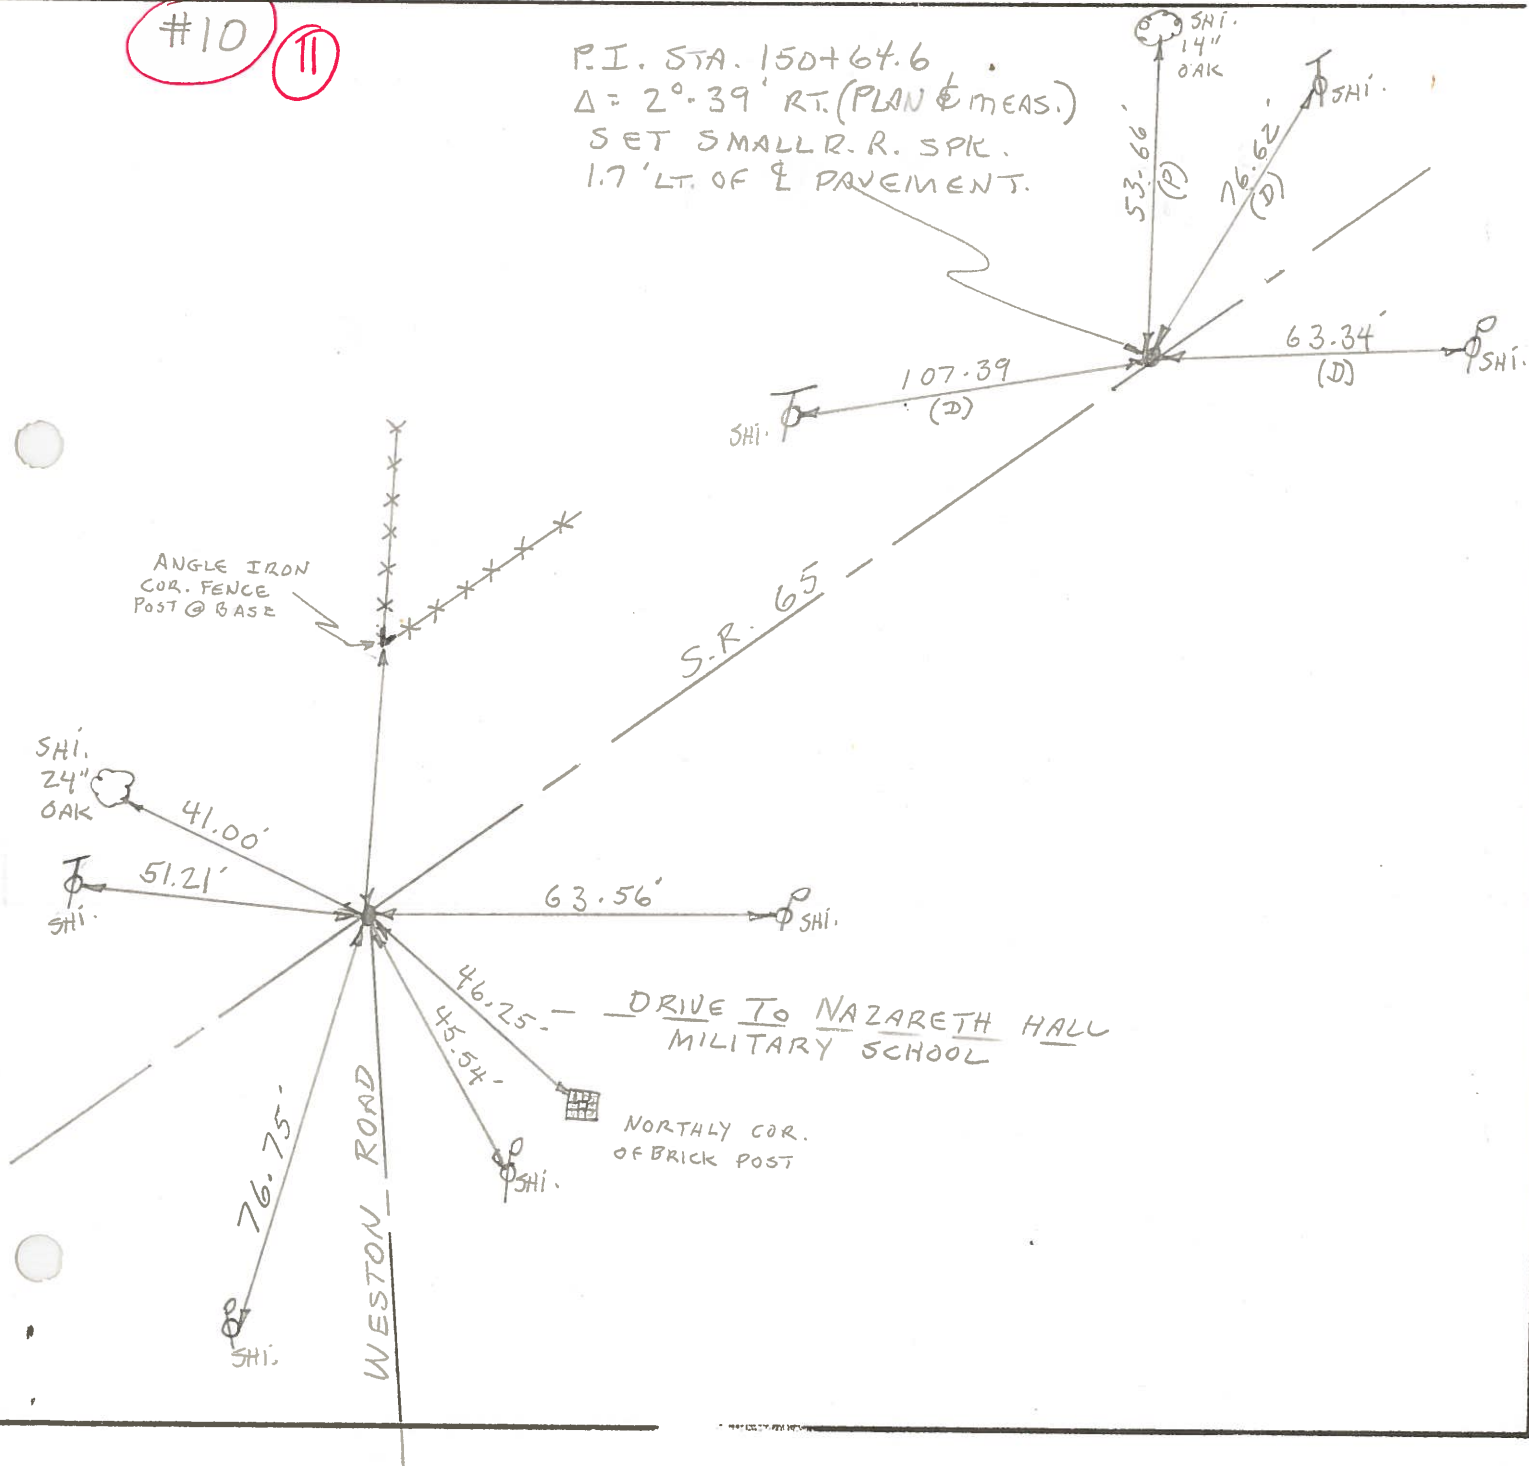 #10
11
P.I. STA. 150+64.6
Δ = 2°-39' RT. (PLAN & MEAS.)
SET SMALL R.R. SPK.
1.7' LT. OF ℄ PAVEMENT.
SHI.
14"
OAK
SHI.
53.66'
(P)
76.62'
(D)
63.34'
(D)
SHI.
107.39
(D)
SHI.
ANGLE IRON
COR. FENCE
POST @ BASE
S.R. 65
SHI.
24"
OAK
41.00'
51.21'
SHI.
63.56'
SHI.
46.25'
45.54'
DRIVE TO NAZARETH HALL
MILITARY SCHOOL
NORTHLY COR.
OF BRICK POST
SHI.
76.75'
SHI.
WESTON ROAD